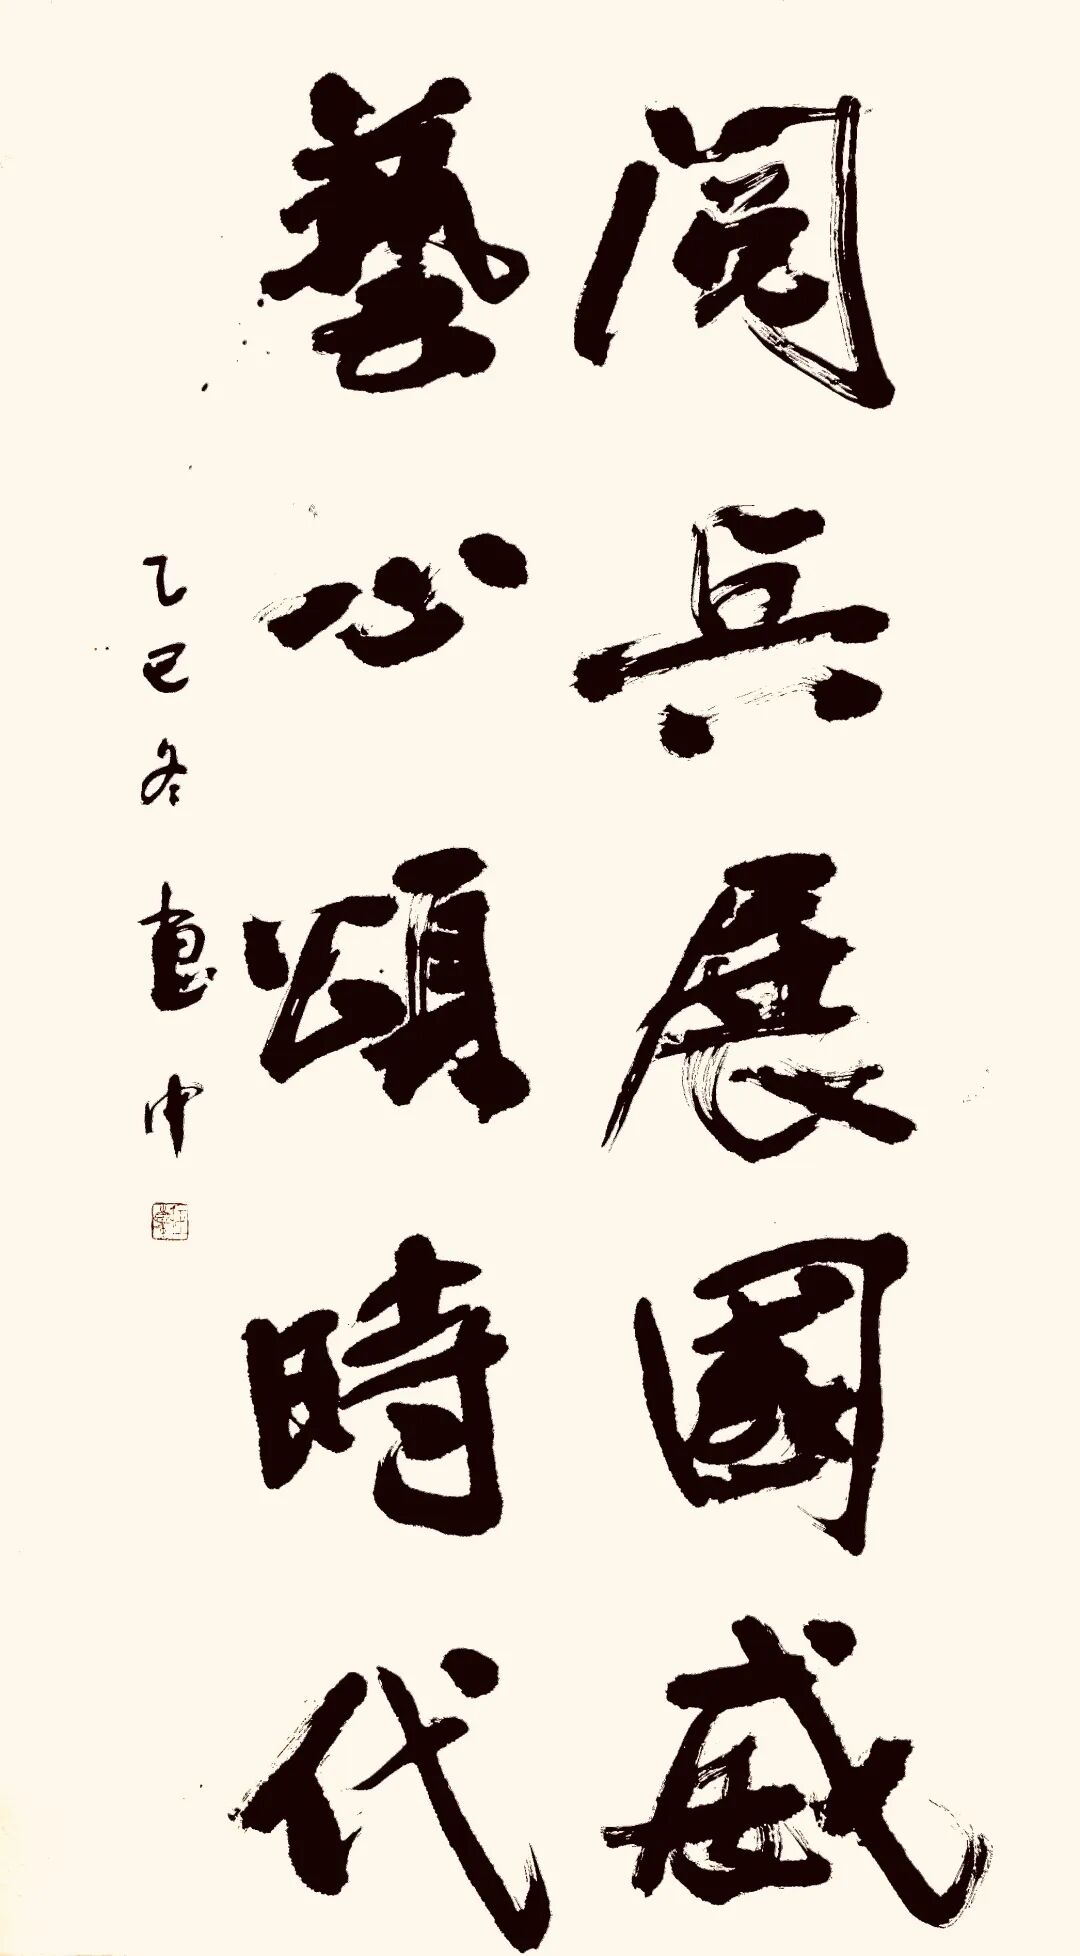 閲兵展國威
藝心頌時代
乙巳冬 憲中